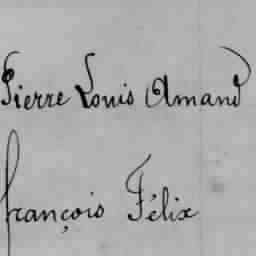 Pierre Louis Amand
François Félix